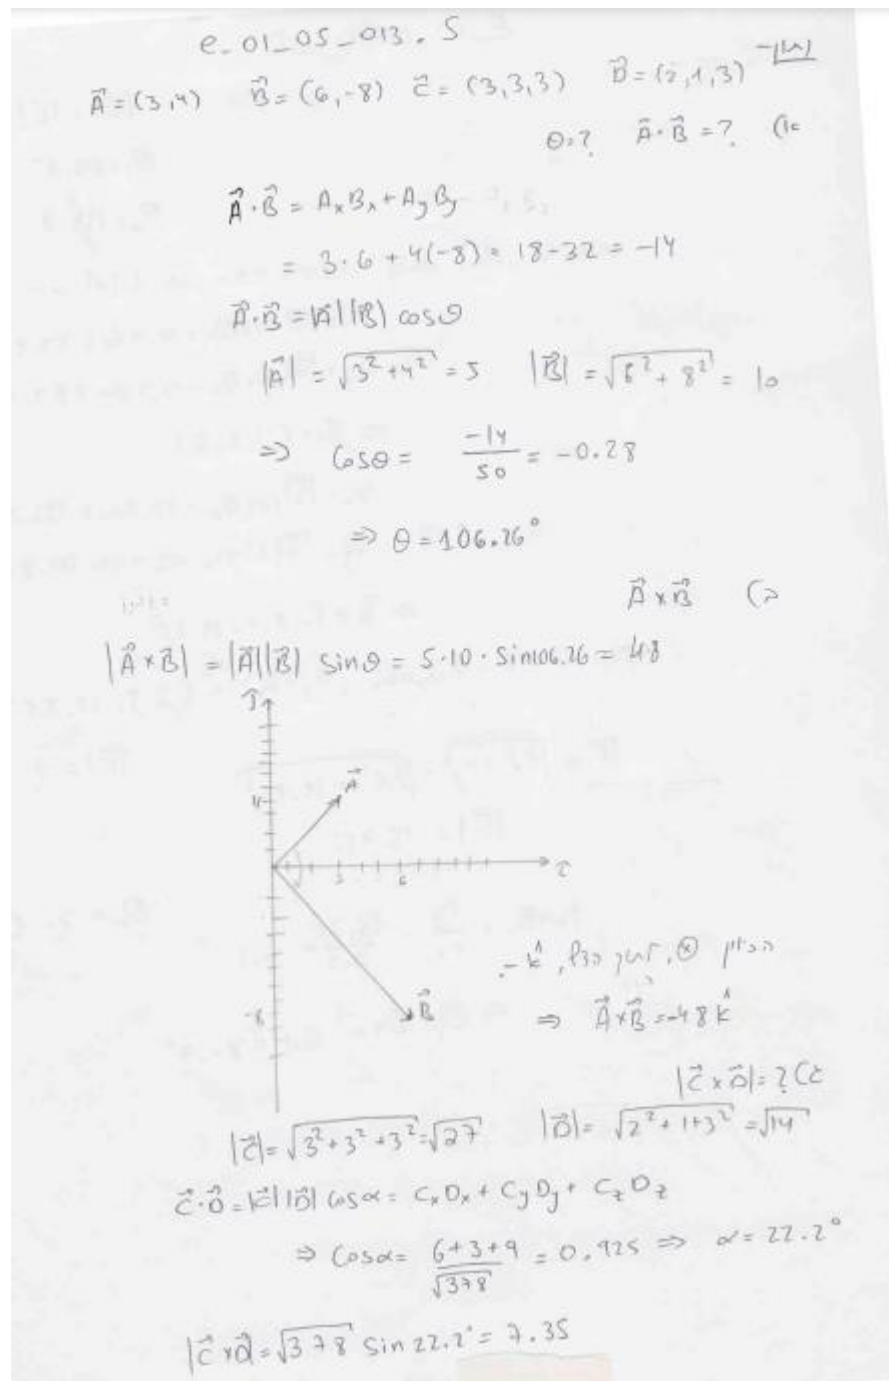 e_01_05_013.S
נתון-
A⃗ = (3,4) B⃗ = (6,-8) C⃗ = (3,3,3) D⃗ = (2,1,3)
א) A⃗·B⃗ = ? θ=?
A⃗·B⃗ = AₓBₓ + AᵧBᵧ
= 3·6 + 4(-8) = 18-32 = -14
A⃗·B⃗ = |A⃗||B⃗| cosθ
|A⃗| = √(3²+4²) = 5 |B⃗| = √(6²+8²) = 10
⇒ Cosθ = -14/50 = -0.28
⇒ θ = 106.26°
ב) A⃗×B⃗
|A⃗×B⃗| = |A⃗||B⃗| sinθ = 5·10·Sin106.26 = 48
ĵ
4
A⃗
3 6
î
-8
B⃗
הכיוון ⊗, לתוך הדף, -k̂.
⇒ A⃗×B⃗ = -48k̂
ג) |C⃗×D⃗| = ?
|C⃗| = √(3²+3²+3²) = √27 |D⃗| = √(2²+1+3²) = √14
C⃗·D⃗ = |C⃗||D⃗| cosα = CₓDₓ + CᵧDᵧ + C_zD_z
⇒ Cosα = (6+3+9)/√378 = 0.925 ⇒ α = 22.2°
|C⃗×D⃗| = √378 Sin 22.2° = 7.35